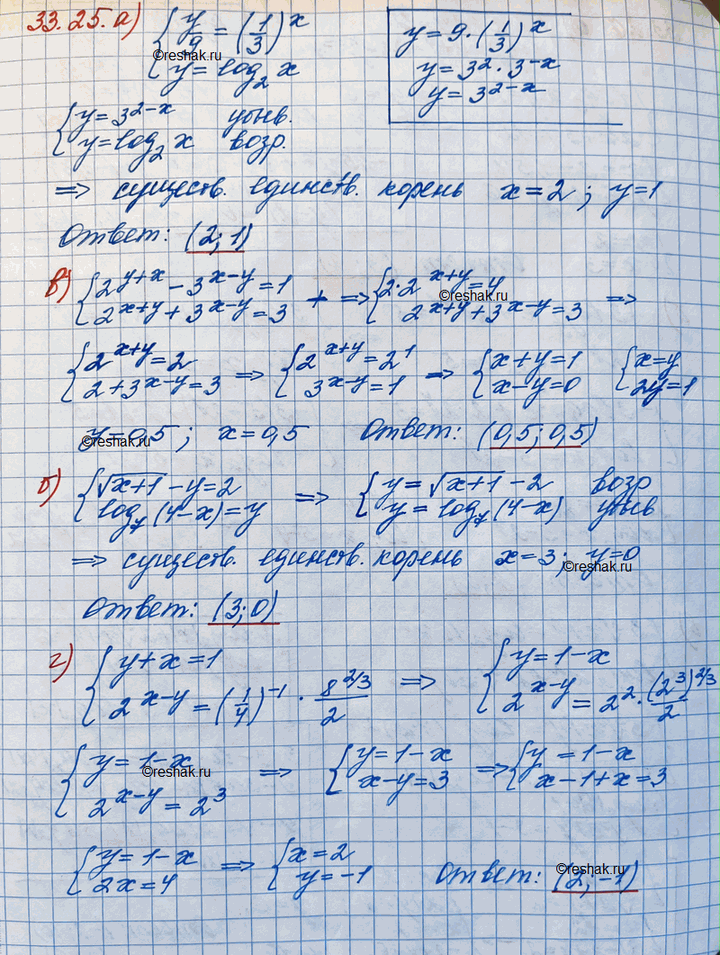 33.25. а) { y/9 = (1/3)^x
y = log₂ x
y = 9 · (1/3)^x
y = 3² · 3^(-x)
y = 3^(2-x)
{ y = 3^(2-x) убыв.
y = log₂ x возр.
=> существ. единств. корень x = 2 ; y = 1
Ответ: (2; 1)
в) { 2^(y+x) - 3^(x-y) = 1
2^(x+y) + 3^(x-y) = 3 + => { 2·2^(x+y) = 4
2^(x+y) + 3^(x-y) = 3 =>
{ 2^(x+y) = 2
2 + 3^(x-y) = 3 => { 2^(x+y) = 2¹
3^(x-y) = 1 => { x+y = 1
x-y = 0 { x = y
2y = 1
y = 0,5 ; x = 0,5 Ответ: (0,5; 0,5)
б) { √(x+1) - y = 2
log₇ (4-x) = y => { y = √(x+1) - 2 возр
y = log₇ (4-x) убыв
=> существ. единств. корень x = 3 ; y = 0
Ответ: (3; 0)
г) { y + x = 1
2^(x-y) = (1/4)^(-1) · 8^(2/3)/2 => { y = 1-x
2^(x-y) = 2² · (2³)^(2/3)/2
{ y = 1-x
2^(x-y) = 2³ => { y = 1-x
x-y = 3 => { y = 1-x
x-1+x = 3
{ y = 1-x
2x = 4 => { x = 2
y = -1 Ответ: (2; -1)
©reshak.ru
©reshak.ru
©reshak.ru
©reshak.ru
©reshak.ru
©reshak.ru